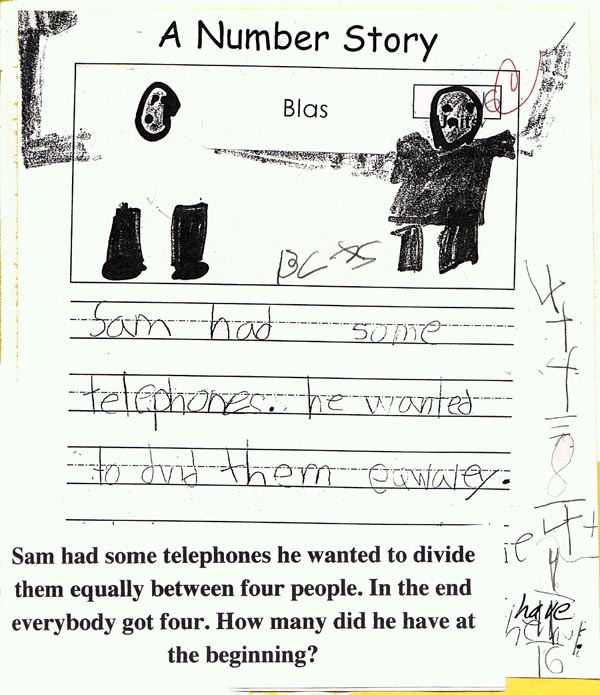 A Number Story
Blas
Sam had some
telephones. he wanted
to dvid them equwaley.
Sam had some telephones he wanted to divide
them equally between four people. In the end
everybody got four. How many did he have at
the beginning?
4+4=8
4+
4
have
16